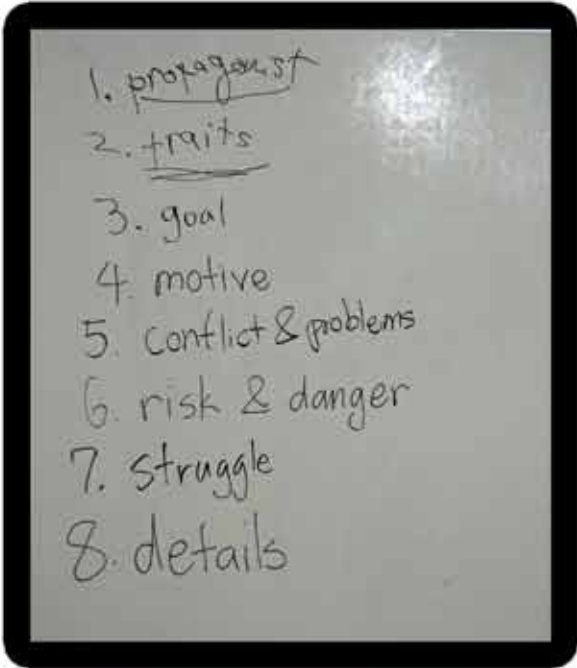 1. propagonist
2. traits
3. goal
4. motive
5. conflict & problems
6. risk & danger
7. struggle
8. details